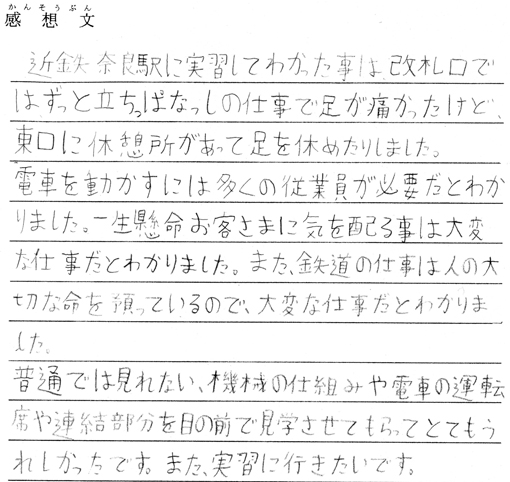 かんそうぶん
感想文
近鉄奈良駅に実習してわかった事は改札口で
はずっと立ちっぱなっしの仕事で足が痛かったけど、
東口に休憩所があって足を休めたりしました。
電車を動かすには多くの従業員が必要だとわか
りました。一生懸命お客さまに気を配る事は大変
な仕事だとわかりました。また、鉄道の仕事は人の大
切な命を預っているので、大変な仕事だとわかりま
した。
普通では見れない、機械の仕組みや電車の運転
席や連結部分を目の前で見学させてもらってとてもう
れしかったです。また、実習に行きたいです。